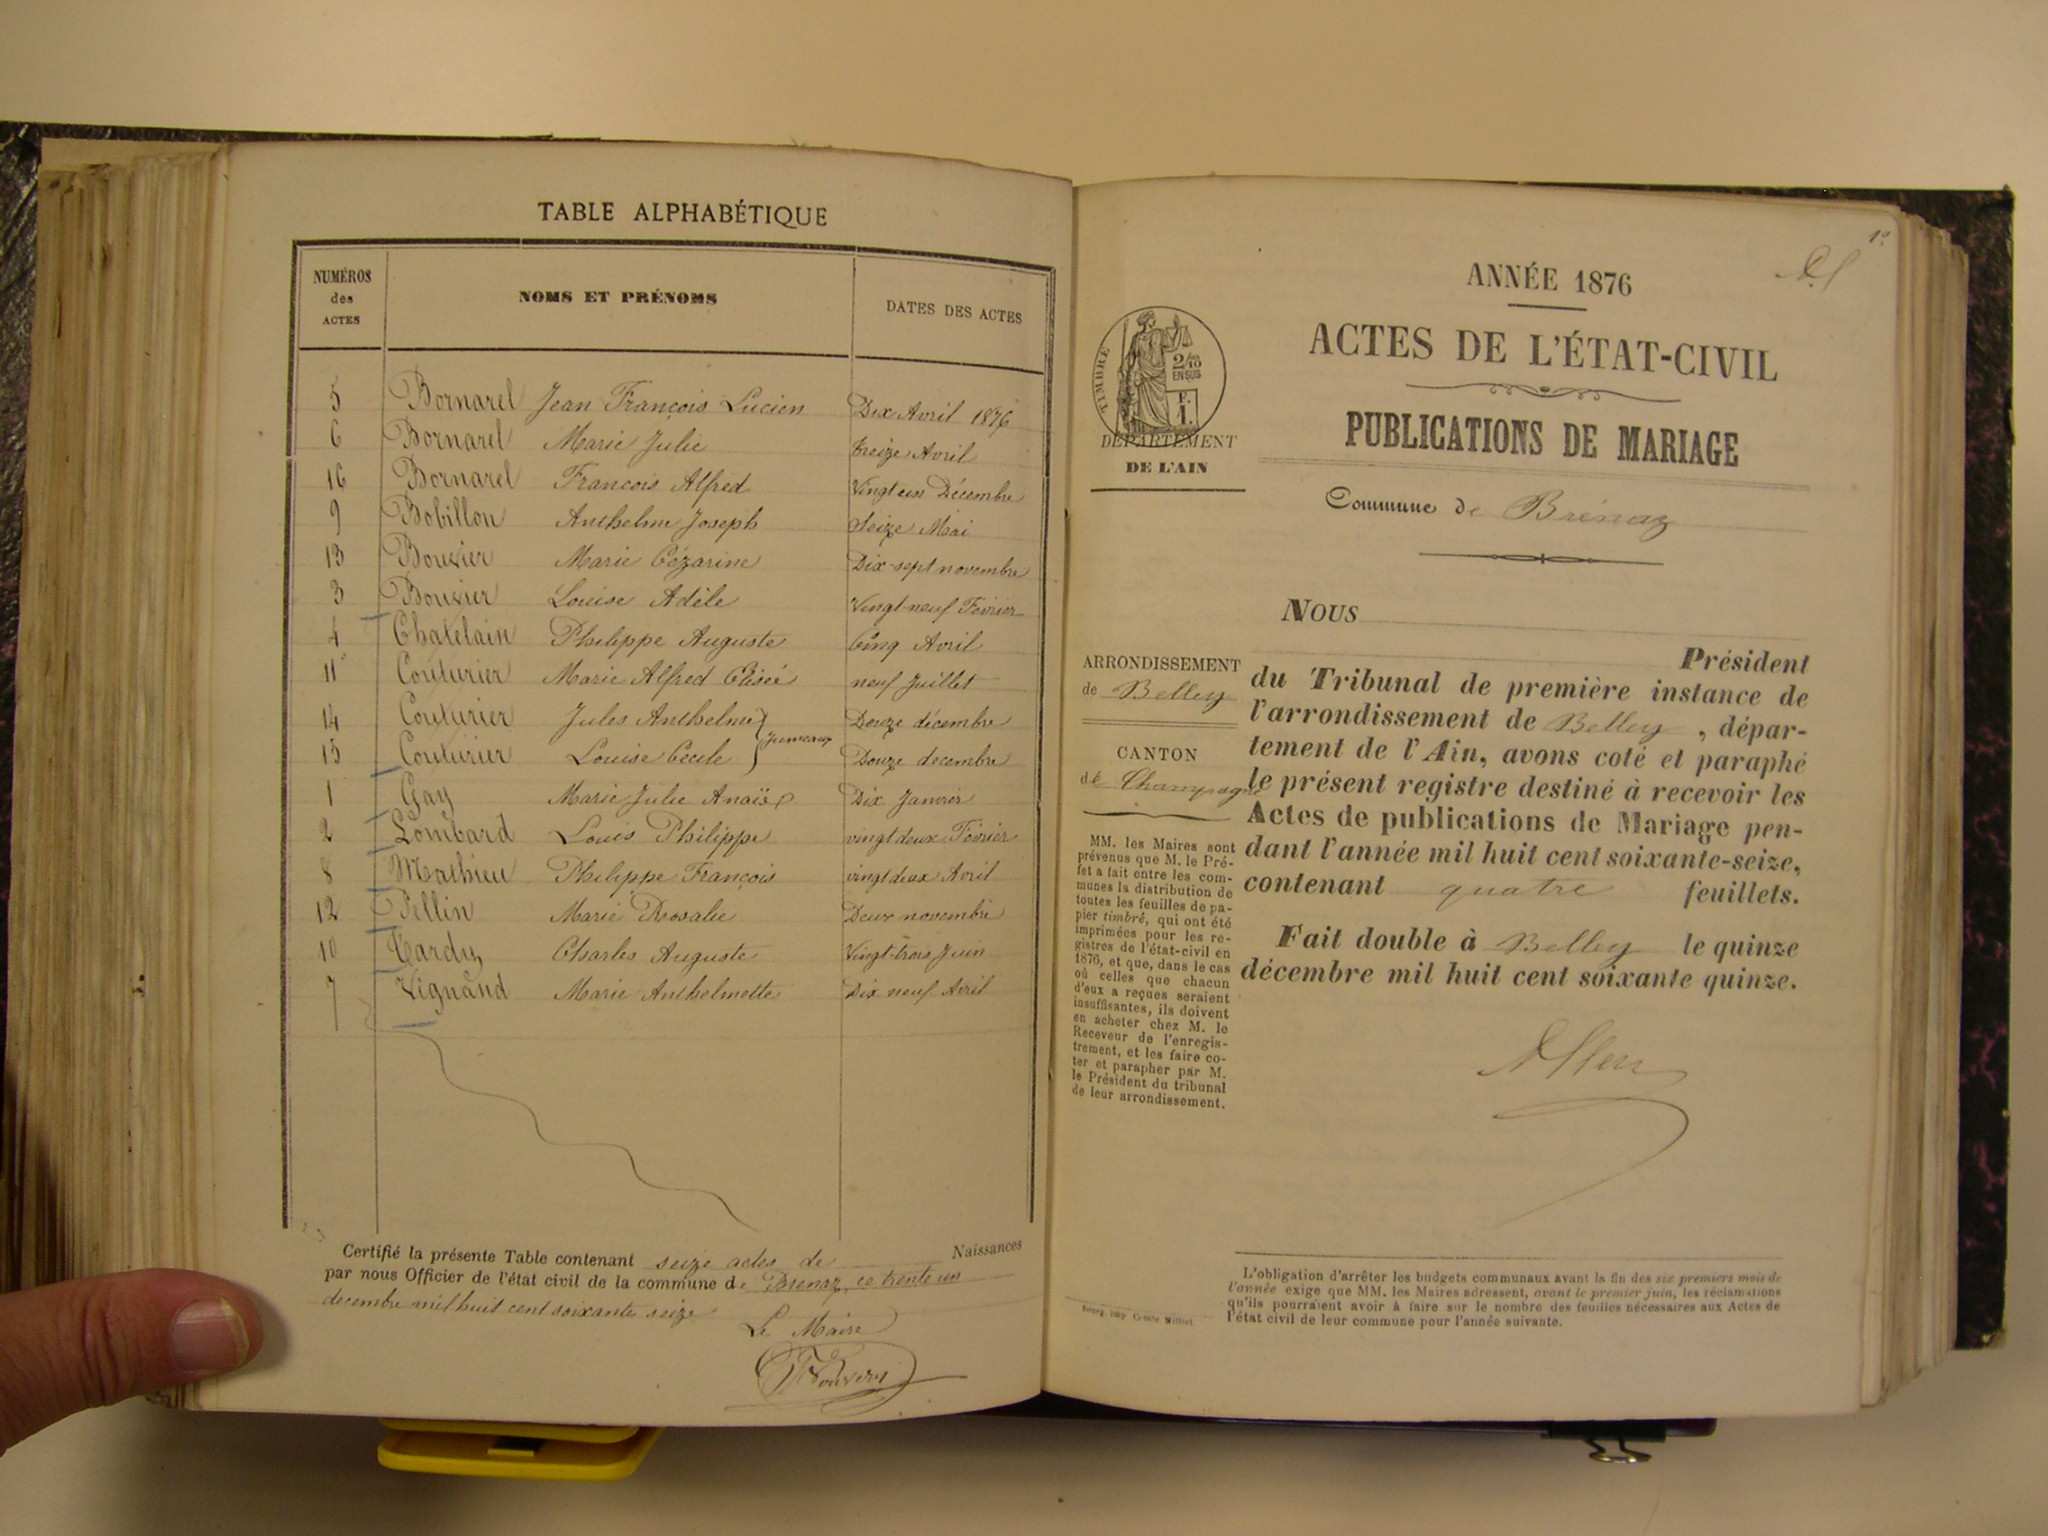 TABLE ALPHABÉTIQUE
NUMÉROS des ACTES NOMS ET PRÉNOMS DATES DES ACTES
5 Bornarel Jean François Lucien Dix Avril 1876
6 Bornarel Marie Julie treize Avril
16 Bornarel François Alfred Vingt un Décembre
9 Bobillon Anthelme Joseph Seize Mai
13 Bouvier Marie Cézarine Dix-sept novembre
3 Bouvier Louise Adèle Vingt-neuf Février
4 Chatelain Philippe Auguste Cinq Avril
11 Couturier Marie Alfred Elisée neuf Juillet
14 Couturier Jules Anthelme Douze décembre
jumeaux
15 Couturier Louise Cécile Douze decembre
1 Gay Marie Julie Anaïs Dix Janvier
2 Lombard Louis Philippe vingt deux Février
8 Mathieu Philippe François vingt deux Avril
12 Pellin Marie Rosalie Deux novembre
10 Tardy Charles Auguste Vingt-trois Juin
7 Vignand Marie Anthelmette Dix neuf Avril
Certifié la présente Table contenant seize actes de Naissances
par nous Officier de l'état civil de la commune de Brenaz, ce trente un
decembre mil huit cent soixante seize
Le Maire
1er
ANNÉE 1876
ACTES DE L'ÉTAT-CIVIL
PUBLICATIONS DE MARIAGE
TIMBRE
2/10
EN SUS
F.
1.
DÉPARTEMENT
DE L'AIN
Commune de Brénaz
NOUS
Président
du Tribunal de première instance de
l'arrondissement de Belley, dépar-
tement de l'Ain, avons coté et paraphé
le présent registre destiné à recevoir les
Actes de publications de Mariage pen-
dant l'année mil huit cent soixante-seize,
contenant quatre feuillets.
Fait double à Belley le quinze
décembre mil huit cent soixante quinze.
ARRONDISSEMENT
de Belley
CANTON
de Champagne
MM. les Maires sont
prévenus que M. le Pré-
fet a fait entre les com-
munes la distribution de
toutes les feuilles de pa-
pier timbré, qui ont été
imprimées pour les re-
gistres de l'état-civil en
1876, et que, dans le cas
où celles que chacun
d'eux a reçues seraient
insuffisantes, ils doivent
en acheter chez M. le
Receveur de l'enregis-
trement, et les faire co-
ter et parapher par M.
le Président du tribunal
de leur arrondissement.
L'obligation d'arrêter les budgets communaux avant la fin des six premiers mois de
l'année exige que MM. les Maires adressent, avant le premier juin, les réclamations
qu'ils pourraient avoir à faire sur le nombre des feuilles nécessaires aux Actes de
l'état civil de leur commune pour l'année suivante.
Bourg, imp. Comte Milliet